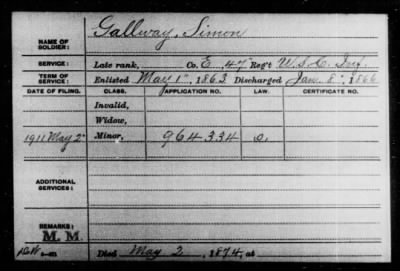 NAME OF SOLDIER: Gallway, Simon
SERVICE: Late rank, Co. E, 47 Reg't U.S.C. Inf.
TERM OF SERVICE: Enlisted May 1", 1863 Discharged Jan. 8", 1866
DATE OF FILING. CLASS. APPLICATION NO. LAW. CERTIFICATE NO.
Invalid,
Widow,
1911 May 2" Minor, 964334
ADDITIONAL SERVICES:
REMARKS:
M. M.
Died May 2, 1874, at